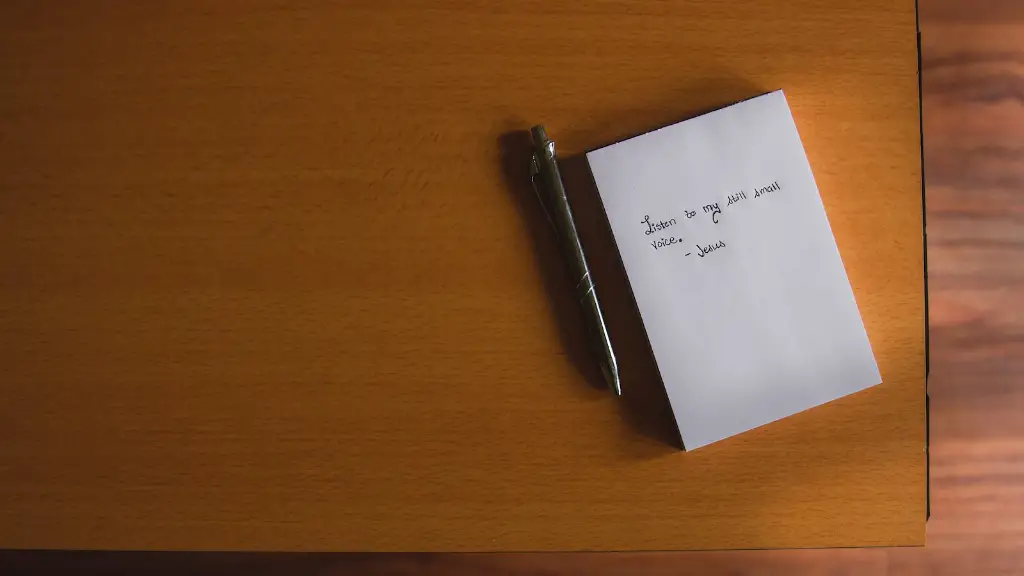 Listen to my still small
voice.
- Jesus